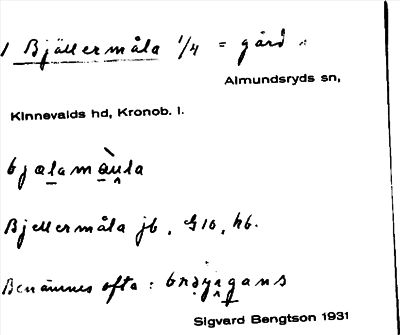 1 Bjällermåla 1/4 = gård
Almundsryds sn,
Kinnevalds hd, Kronob. l.
Bjellermåla jb, G10, hb.
Benämnes ofta:
Sigvard Bengtson 1931